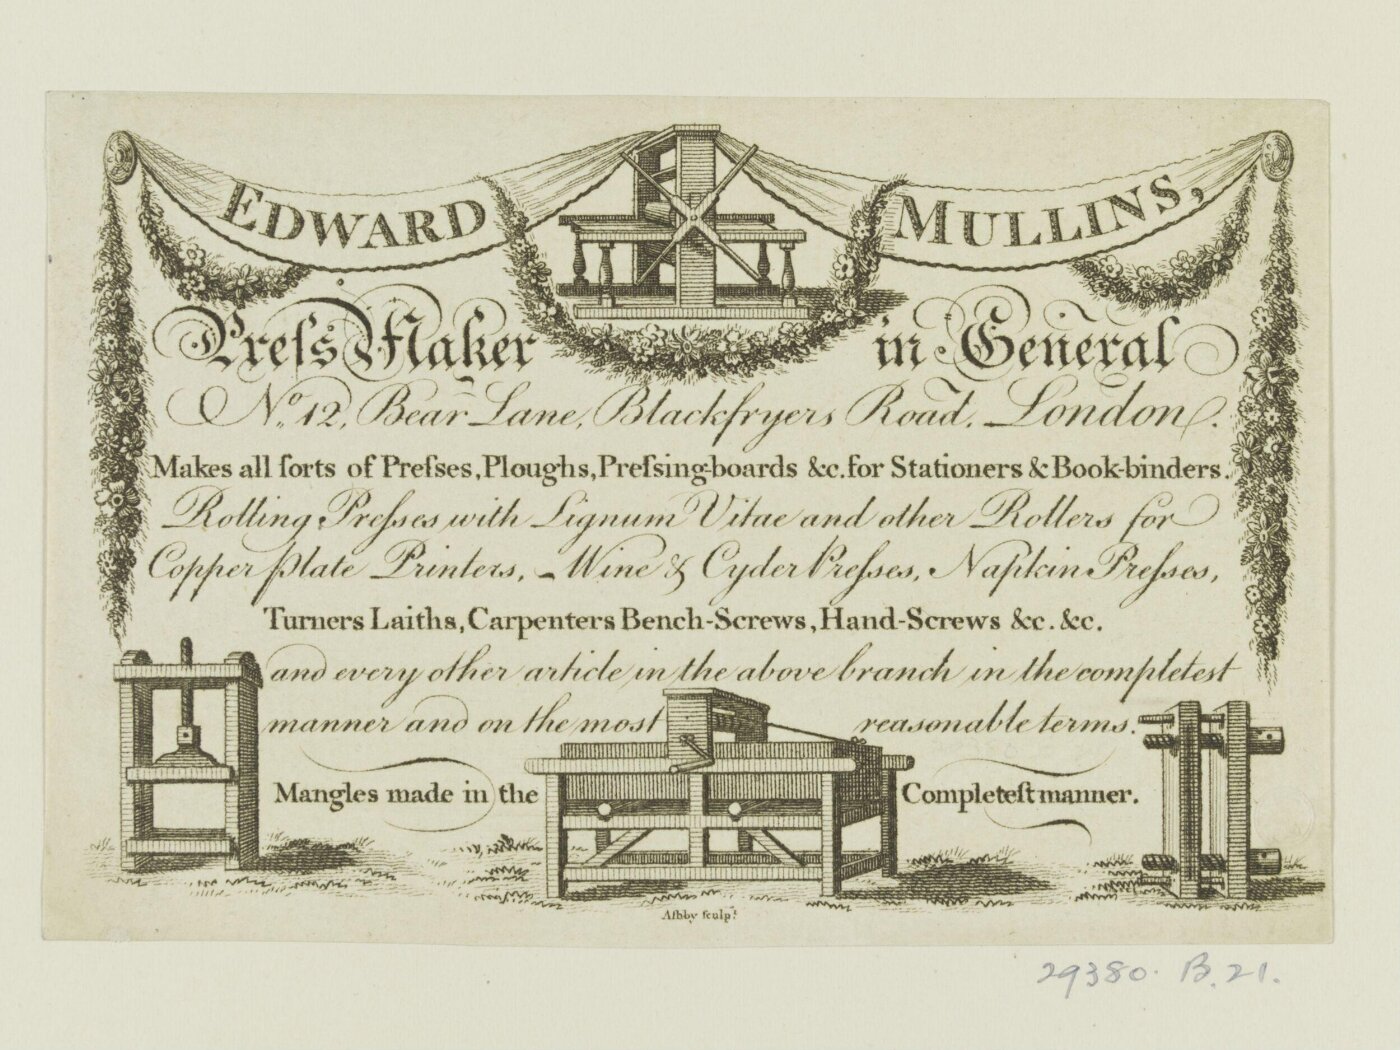 EDWARD MULLINS,
Preſs Maker in General
No. 12, Bear Lane, Blackfryers Road, London.
Makes all ſorts of Preſses, Ploughs, Preſsing-boards &c. for Stationers & Book-binders.
Rolling Preſses with Lignum Vitae and other Rollers for
Copper plate Printers, Wine & Cyder Preſses, Napkin Preſses,
Turners Laiths, Carpenters Bench-Screws, Hand-Screws &c. &c.
and every other article in the above branch in the completest
manner and on the most reasonable terms.
Mangles made in the Completeſt manner.
Aſhby ſculpt.
29380. B. 21.